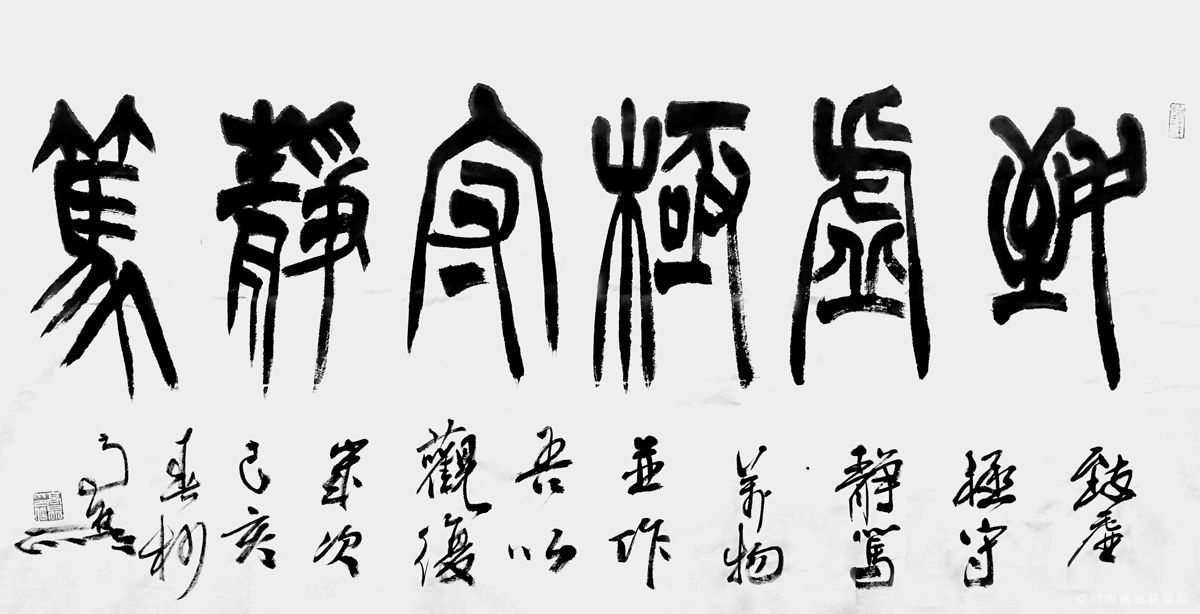 致虛極守靜篤
致虛
極守
靜篤
萬物
並作
吾以
觀復
歲次
己亥
春